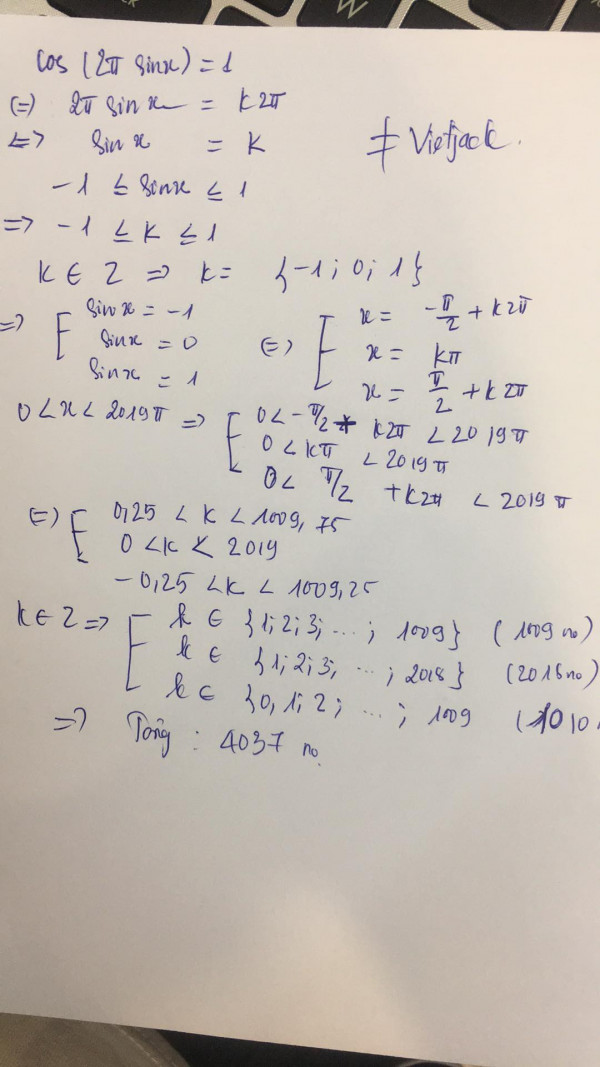 cos (2π sinx) = 1
(=) 2π sin x = k2π
<=> sin x = k
≠ Vietjack.
-1 ≤ sinx ≤ 1
=> -1 ≤ k ≤ 1
k ∈ Z => k = {-1; 0; 1}
=> [ sin x = -1 (=) [ x = -π/2 + k2π
sinx = 0 x = kπ
sinx = 1 x = π/2 + k2π
0 < x < 2019π => [ 0 < -π/2 + k2π < 2019π
0 < kπ < 2019π
0 < π/2 + k2π < 2019π
(=) [ 0,25 < k < 1009,75
0 < k < 2019
-0,25 < k < 1009,25
k ∈ Z => [ k ∈ {1; 2; 3; ...; 1009} (1009 no)
k ∈ {1; 2; 3, ...; 2018} (2018 no)
k ∈ {0, 1; 2; ...; 1009 (1010
=> Tổng : 4037 no.